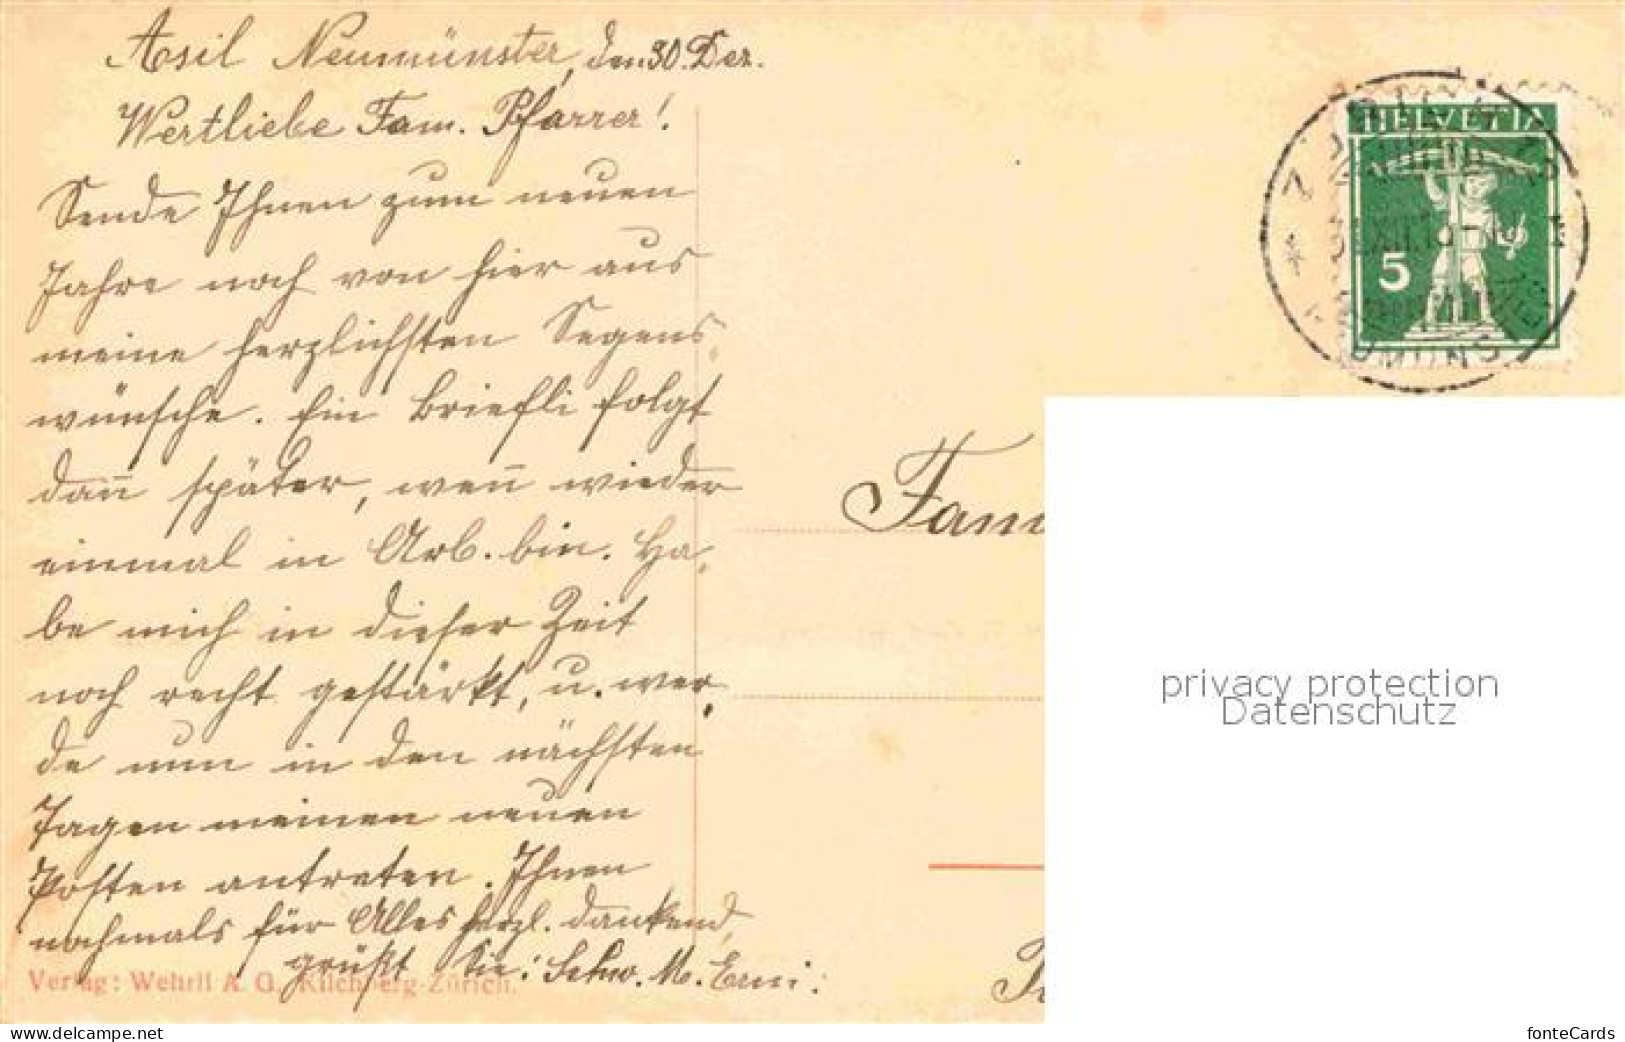 Asil Neumünster, den 30. Dez.
Wertliebe Fam. Pfarrer!
Sende Ihnen zum neuen
Jahre noch von hier aus
meine herzlichsten Segens
wünsche. Ein Briefli folgt
dan̄ später, wen̄ wieder
einmal in Arb. bin. Ha,
be mich in dieser Zeit
noch recht gestärkt, u. wer,
de nun in den nächsten
Tagen meinen neuen
Posten antreten. Ihnen
nochmals für Alles herzl. dankend,
grüßt Sie: Schw. M. Erni:
Verlag: Wehrli A. G., Kilchberg-Zürich.
HELVETIA
5
Fam
privacy protection
Datenschutz
www.delcampe.net
fonteCards